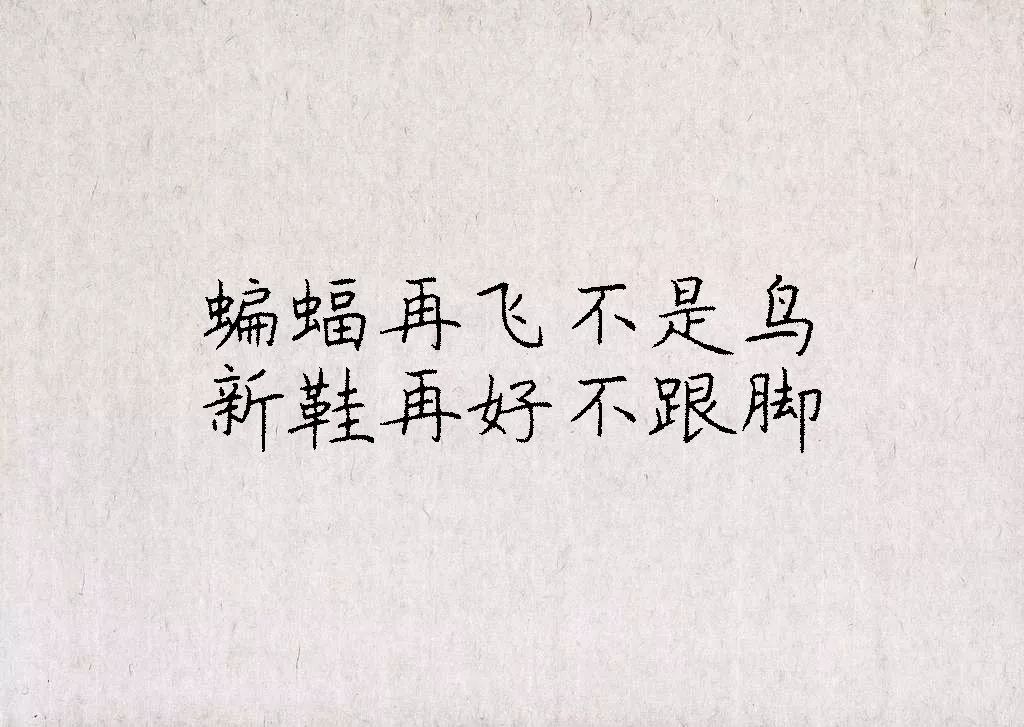 蝙蝠再飞不是鸟
新鞋再好不跟脚